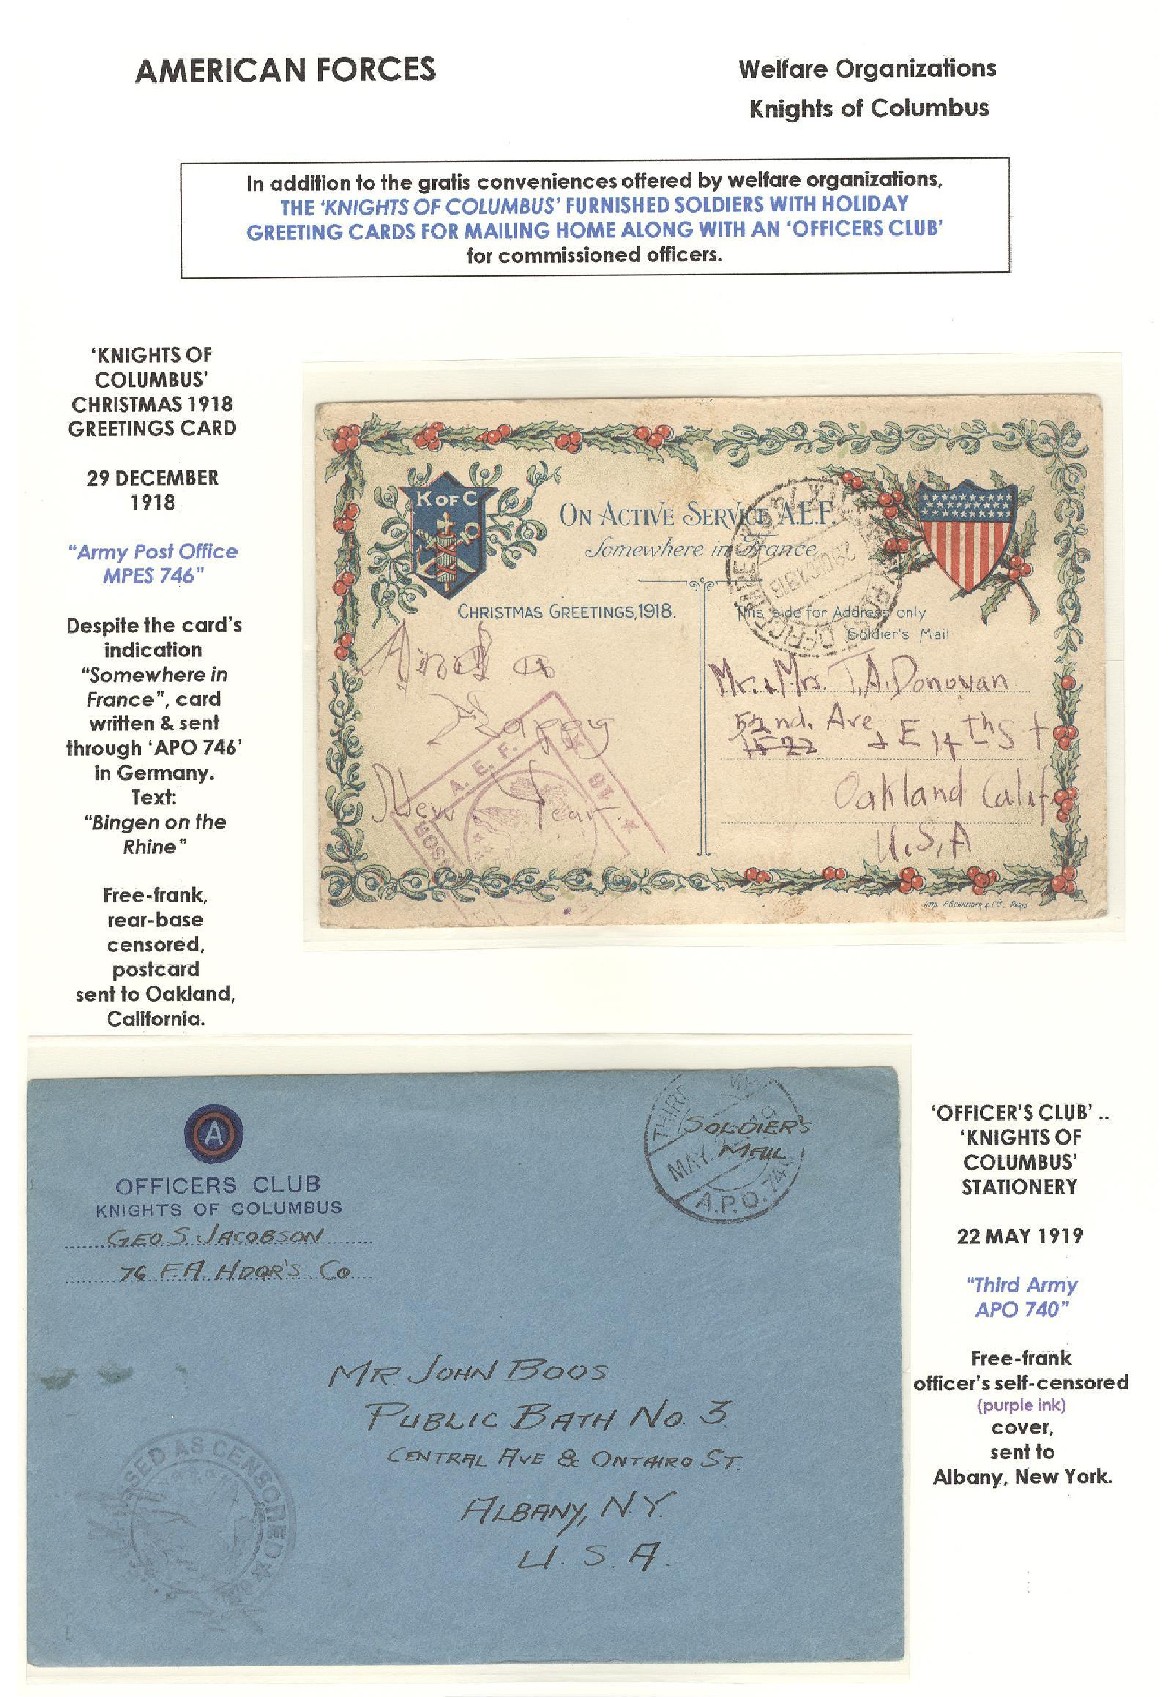 AMERICAN FORCES
Welfare Organizations
Knights of Columbus
In addition to the gratis conveniences offered by welfare organizations,
THE 'KNIGHTS OF COLUMBUS' FURNISHED SOLDIERS WITH HOLIDAY
GREETING CARDS FOR MAILING HOME ALONG WITH AN 'OFFICERS CLUB'
for commissioned officers.
'KNIGHTS OF
COLUMBUS'
CHRISTMAS 1918
GREETINGS CARD
29 DECEMBER
1918
"Army Post Office
MPES 746"
Despite the card's
indication
"Somewhere in
France", card
written & sent
through 'APO 746'
in Germany.
Text:
"Bingen on the
Rhine"
Free-frank,
rear-base
censored,
postcard
sent to Oakland,
California.
K OF C
ON ACTIVE SERVICE A.E.F.
Somewhere in France
CHRISTMAS GREETINGS, 1918.
This side for Address only
Soldier's Mail
And a
Happy
New Year
A. E. F.
Mr. & Mrs. T. A. Donovan
52nd. Ave & E 14th St
Oakland Calif.
U.S.A
A
OFFICERS CLUB
KNIGHTS OF COLUMBUS
GEO S. JACOBSON
76 F.A. HDQR'S Co
THIRD
SOLDIER'S
MAIL
MAY
A.P.O. 740
MR JOHN BOOS
PUBLIC BATH NO. 3
CENTRAL AVE & ONTAIRO ST.
ALBANY, N.Y.
U. S. A.
AS CENSORED
'OFFICER'S CLUB' ..
'KNIGHTS OF
COLUMBUS'
STATIONERY
22 MAY 1919
"Third Army
APO 740"
Free-frank
officer's self-censored
(purple ink)
cover,
sent to
Albany, New York.